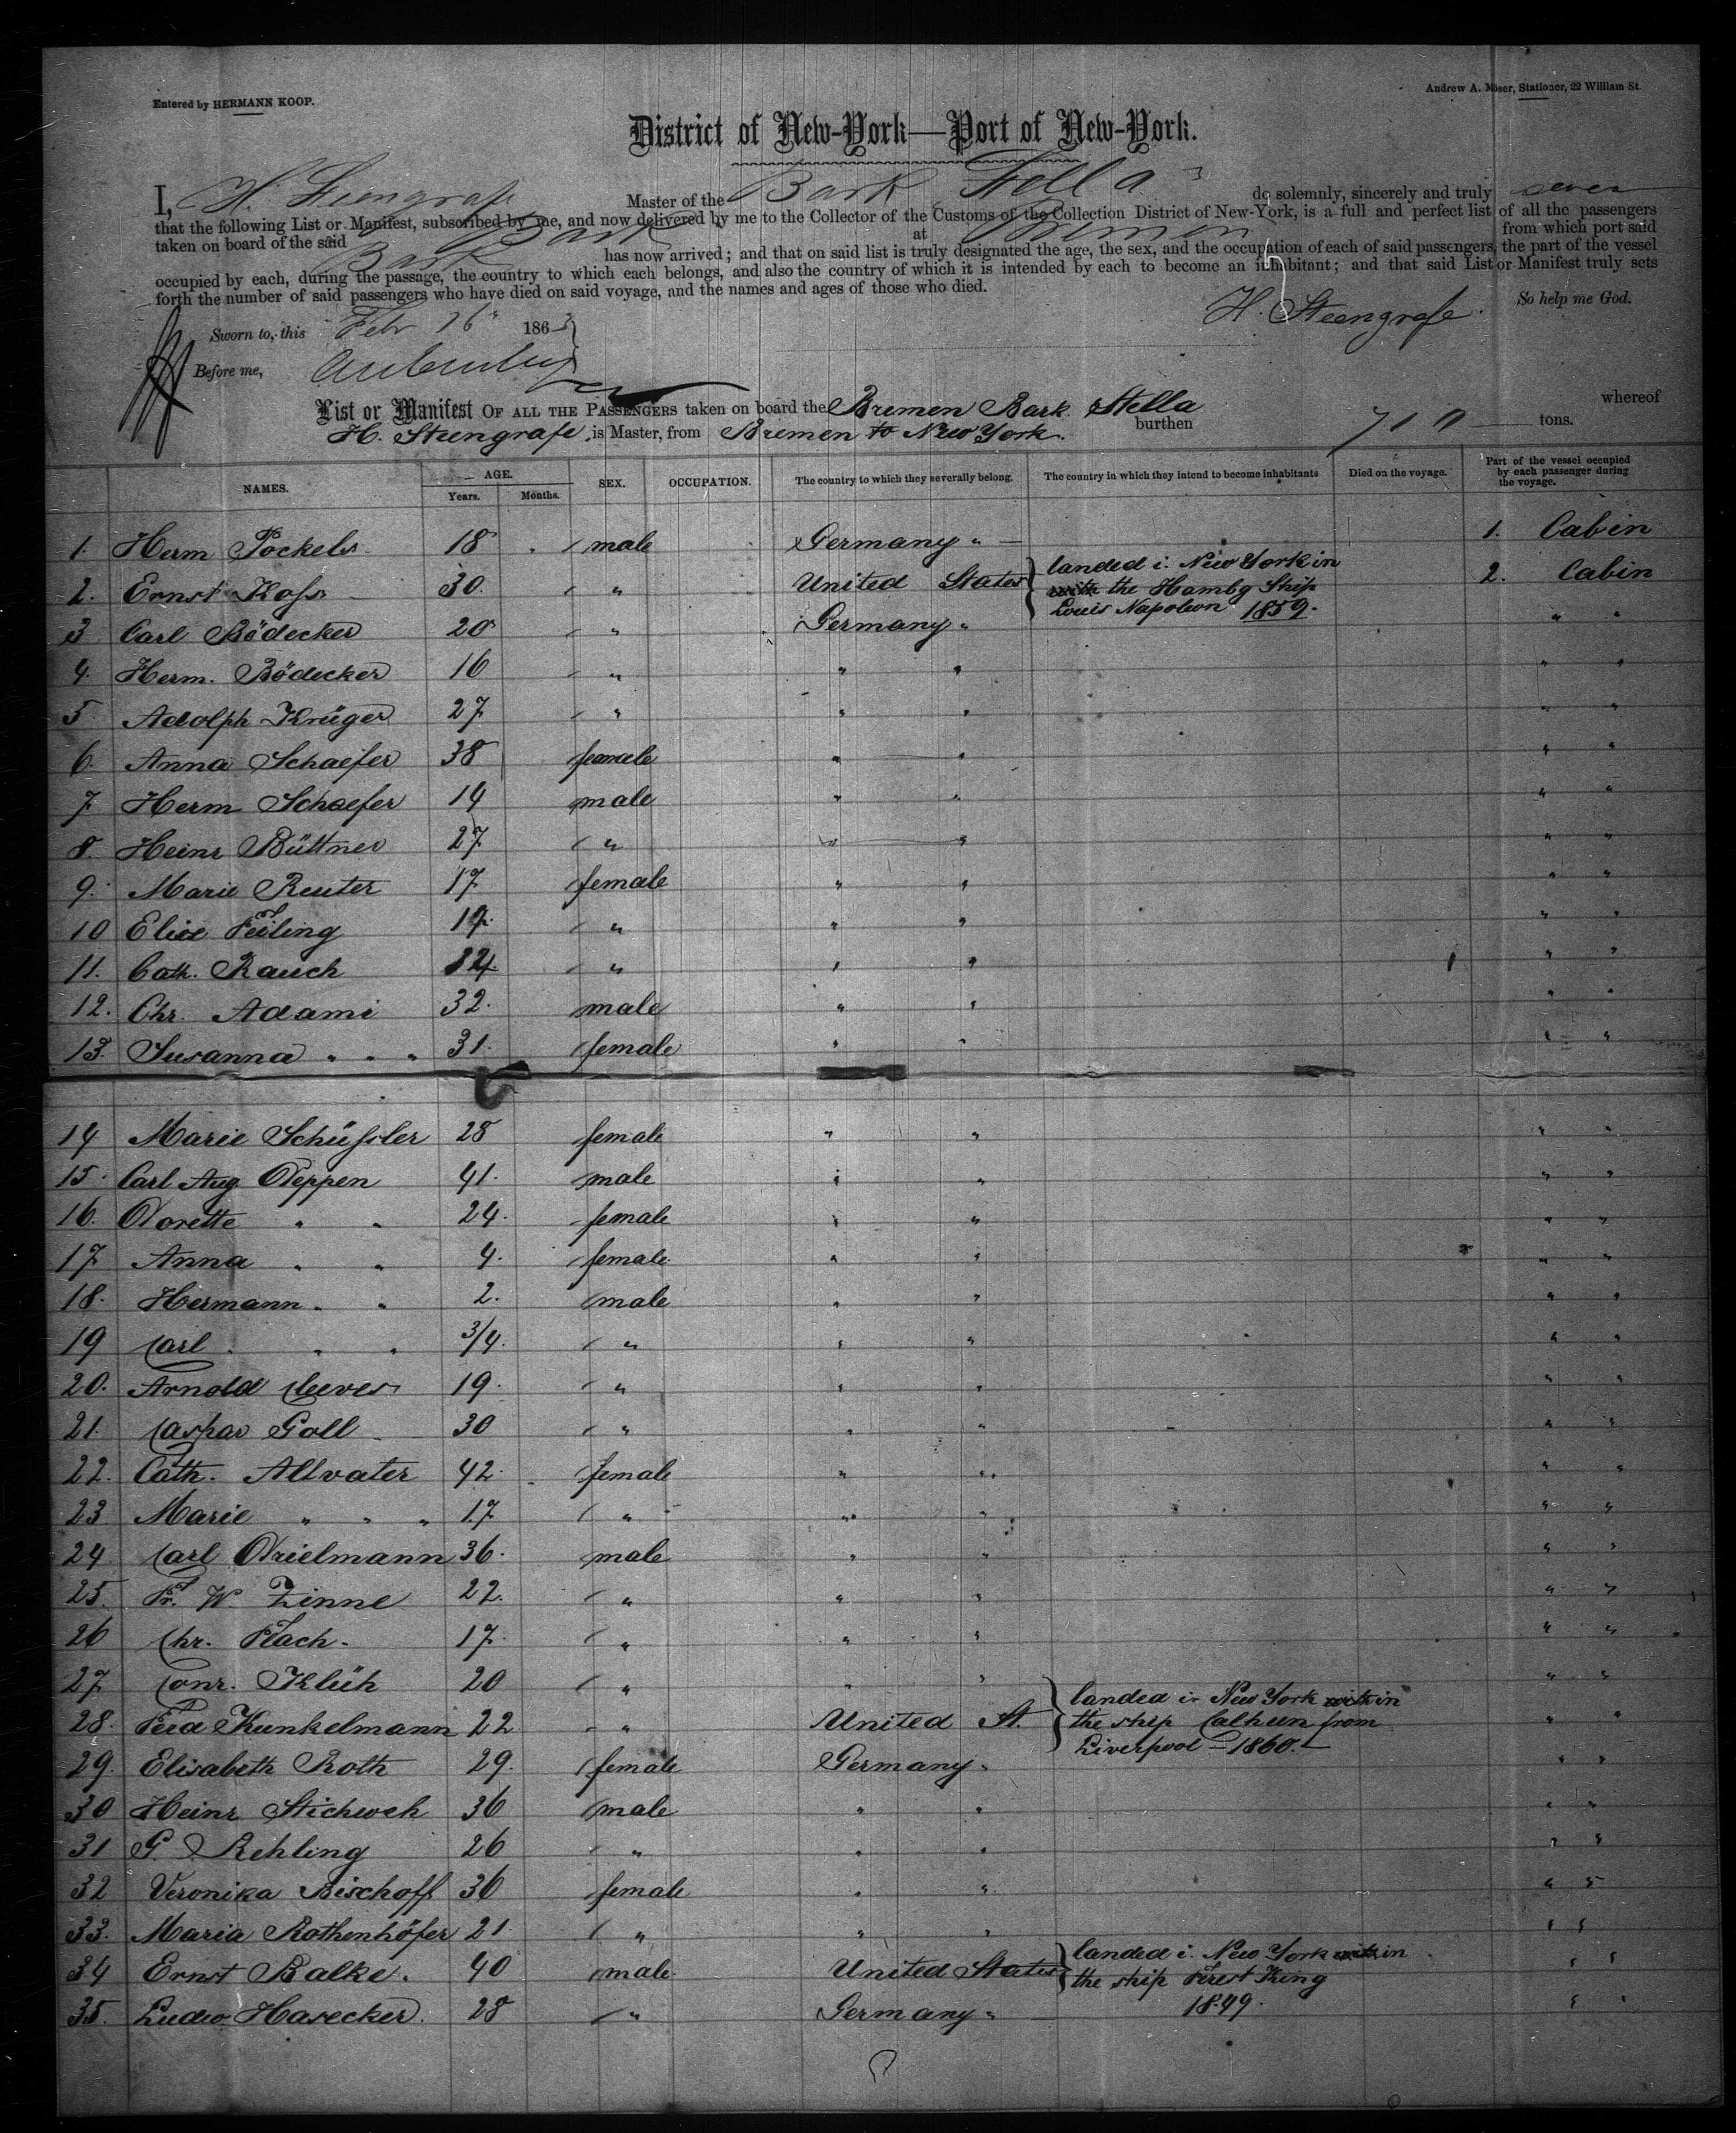 Entered by HERMANN KOOP.
Andrew A. Moser, Stationer, 22 William St
District of New-York—Port of New-York.
I, H. Steengrafe Master of the Bark Stella do solemnly, sincerely and truly swear
that the following List or Manifest, subscribed by me, and now delivered by me to the Collector of the Customs of the Collection District of New-York, is a full and perfect list of all the passengers
taken on board of the said Bark at Bremen from which port said
Bark has now arrived; and that on said list is truly designated the age, the sex, and the occupation of each of said passengers, the part of the vessel
occupied by each, during the passage, the country to which each belongs, and also the country of which it is intended by each to become an inhabitant; and that said List or Manifest truly sets
forth the number of said passengers who have died on said voyage, and the names and ages of those who died.
So help me God.
H. Steengrafe
Sworn to, this Febr 16 1863
Before me,
List or Manifest OF ALL THE PASSENGERS taken on board the Bremen Bark Stella whereof
H. Steengrafe is Master, from Bremen to New York. burthen 710 tons.
NAMES. AGE. Years. Months. SEX. OCCUPATION. The country to which they severally belong. The country in which they intend to become inhabitants Died on the voyage. Part of the vessel occupied by each passenger during the voyage.
1. Herm Pockels 18 male Germany " 1. Cabin
2. Ernst Koss 30. " United States landed i. New York in with the Hambg Ship Louis Napoleon 1859. 2. Cabin
3 Carl Bödecker 20 " Germany " " "
4. Herm. Bödecker 16 " " " " "
5 Adolph Krüger 27 " " " " "
6. Anna Schaefer 38 female " " " "
7 Herm Schaefer 14 male " " " "
8. Heinr Büttner 27 " " " " "
9. Marie Reuter 17 female " " " "
10 Elise Feiling 17. " " " " "
11. Cath. Rauch 24. " " " " "
12. Chr. Adami 32. male " " " "
13. Susanna " " " 31. female " " " "
14 Marie Schüssler 28 female " " " "
15. Carl Aug Deppen 41. male " " " "
16. Dorette " " 24. female " " " "
17 Anna " " 4. female " " " "
18. Hermann " " 2. male " " " "
19 Carl " " " 3/4. " " " " "
20. Arnold Cleeves 19. " " " " "
21. Caspar Goll 30 " " " " "
22. Cath. Allvater 42. female " " " "
23 Marie " " " 17. " " " " "
24 Carl Drielmann 36. male " " " "
25. Fr. W. Zinne 22. " " " " "
26 Chr. Flach. 17. " " " " "
27 Conr. Klüh 20 " " " " "
28. Ferd Kunkelmann 22 " United St. landed in New York with in the ship Calhoun from Liverpool — 1860. " "
29. Elisabeth Roth 29. female Germany " " "
30 Heinr Stichweh 36 male " " " "
31 G. Rehling 26 " " " " "
32 Veronika Bischoff 36 female " " " "
33. Maria Rothenhöfer 21. " " " " "
34 Ernst Balke. 40 male United States landed i. New York with in the ship Forest King 1849. " "
35. Ludw. Hasecker. 28 " Germany " " "